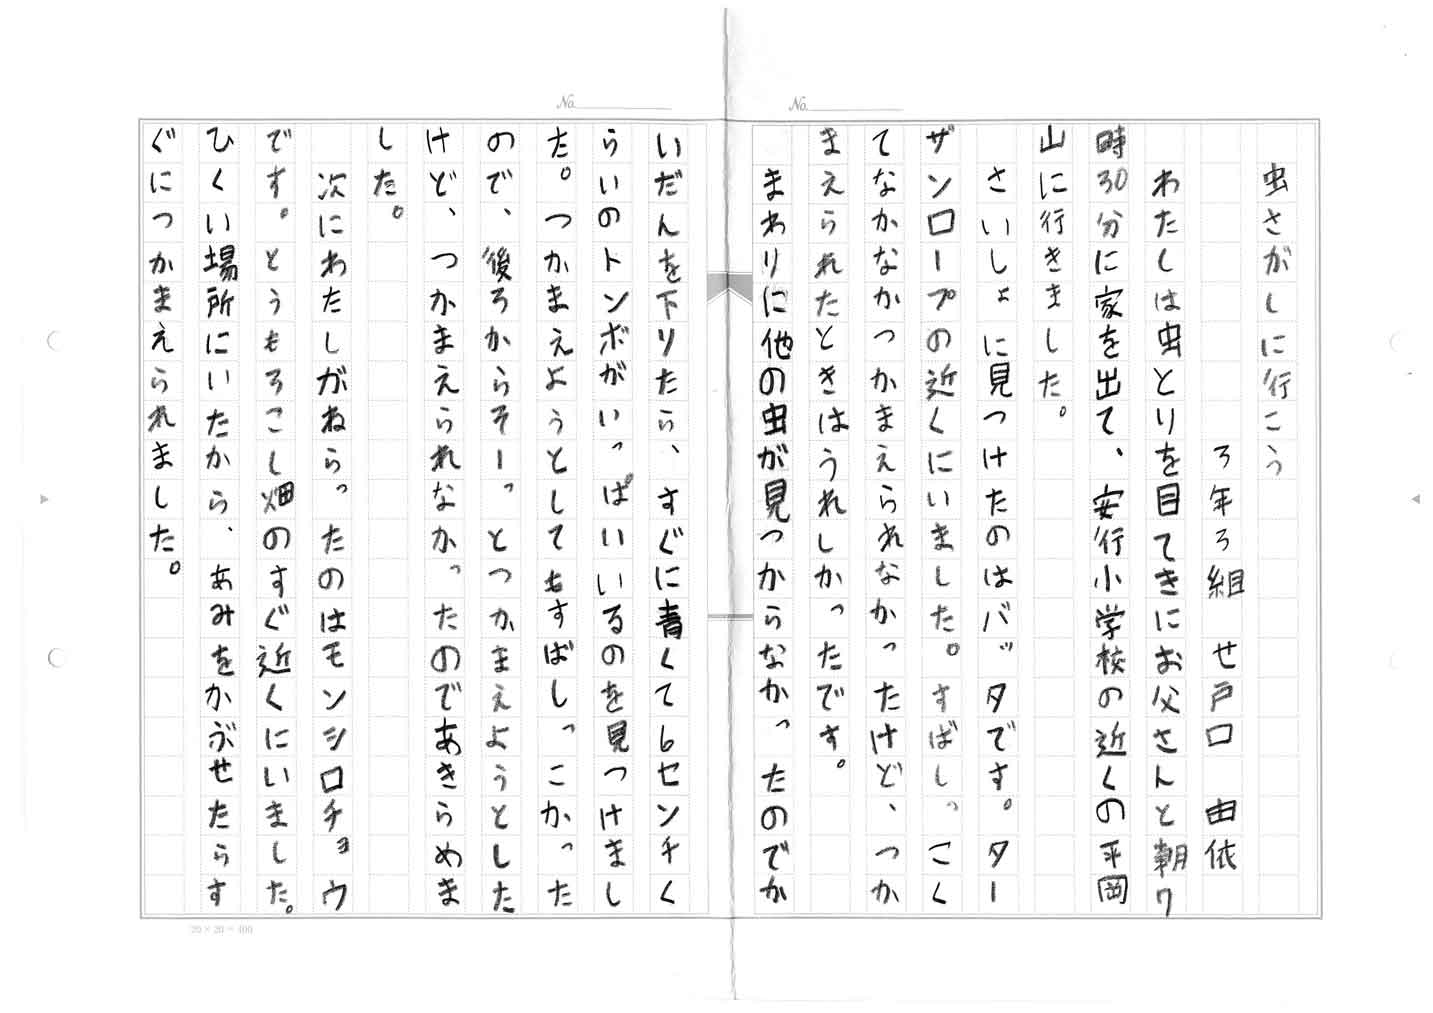 虫さがしに行こう
3年3組 せ戸口 由依
わたしは虫とりを目てきにお父さんと朝7
時30分に家を出て、安行小学校の近くの平岡
山に行きました。
さいしょに見つけたのはバッタです。ター
ザンロープの近くにいました。すばしっこく
てなかなかつかまえられなかったけど、つか
まえられたときはうれしかったです。
まわりに他の虫が見つからなかったのでか
いだんを下りたら、すぐに青くて6センチく
らいのトンボがいっぱいいるのを見つけまし
た。つかまえようとしてもすばしっこかった
ので、後ろからそーっとつかまえようとした
けど、つかまえられなかったのであきらめま
した。
次にわたしがねらったのはモンシロチョウ
です。とうもろこし畑のすぐ近くにいました。
ひくい場所にいたから、あみをかぶせたらす
ぐにつかまえられました。
No.
No.
20×20=400